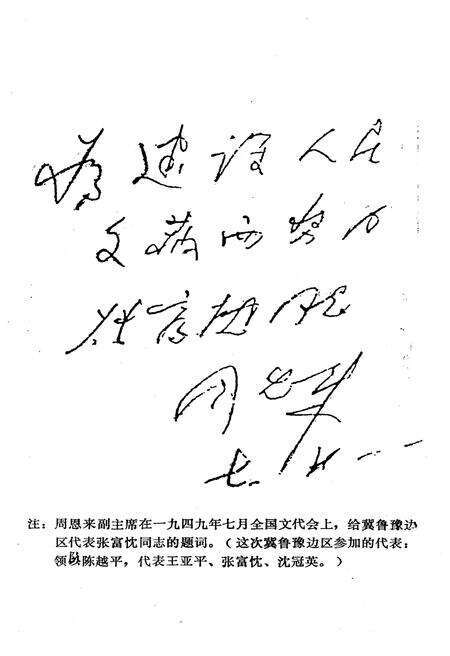 为建设人民
文艺而努力
周恩来
七、
注：周恩来副主席在一九四九年七月全国文代会上，给冀鲁豫边
区代表张富忱同志的题词。（这次冀鲁豫边区参加的代表：
领队陈越平，代表王亚平、张富忱、沈冠英。）